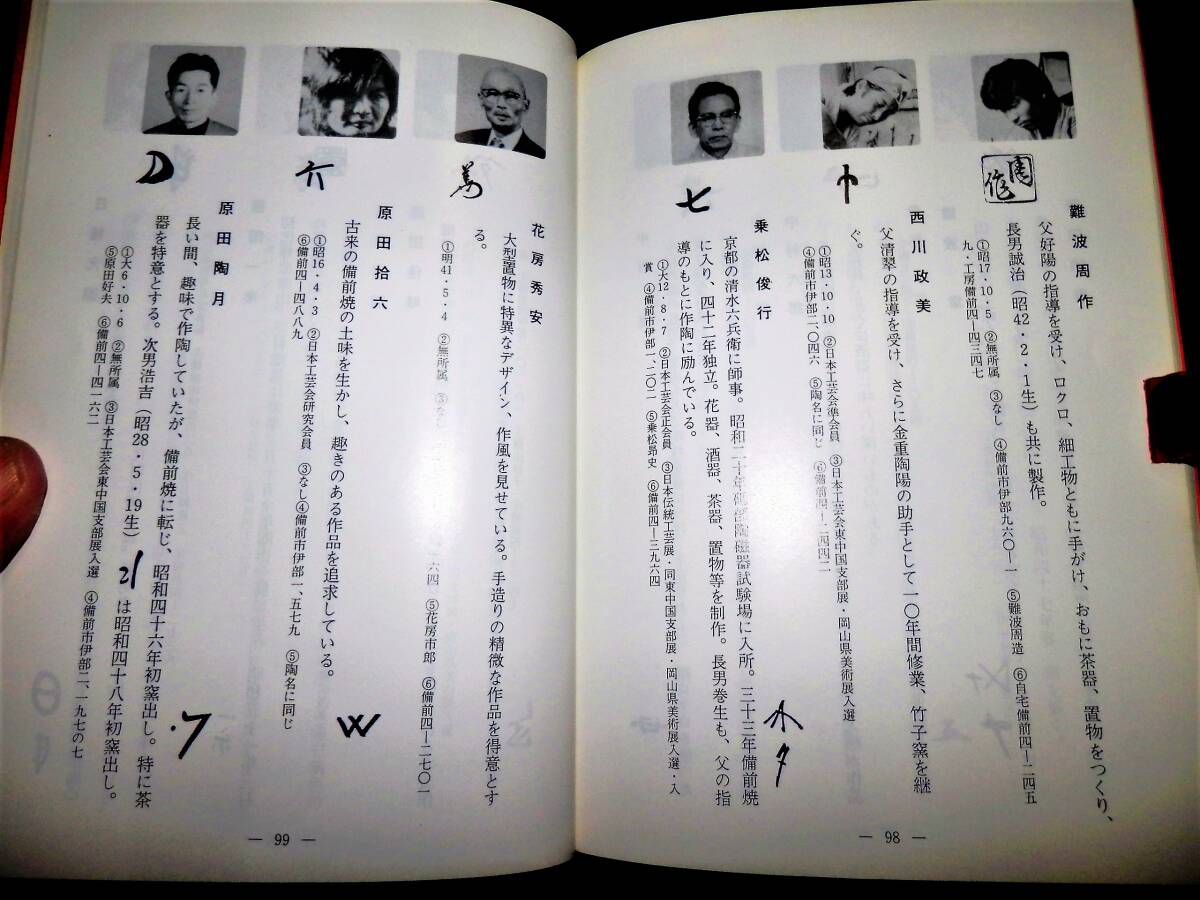 難波周作
父好陽の指導を受け、ロクロ、細工物ともに手がけ、おもに茶器、置物をつくり、
長男誠治（昭42・2・1生）も共に製作。
①昭17・10・5 ②無所属 ③なし ④備前市伊部九六〇―一 ⑤難波周造 ⑥自宅備前四―二四五
九・工房備前四―四三四七
周作
西川政美
父清翠の指導を受け、さらに金重陶陽の助手として一〇年間修業、竹子窯を継
ぐ。
①昭13・10・10 ②日本工芸会準会員 ③日本工芸会東中国支部展・岡山県美術展入選
④備前市伊部二、〇四六 ⑤陶名に同じ ⑥備前四―二四四二
乗松俊行
京都の清水六兵衛に師事。昭和二十年 陶磁器試験場に入所。三十三年備前焼
に入り、四十二年独立。花器、酒器、茶器、置物等を制作。長男巻生も、父の指
導のもとに作陶に励んでいる。
①大12・8・7 ②日本工芸会正会員 ③日本伝統工芸展・同東中国支部展・岡山県美術展入選・入
賞 ④備前市伊部一、二〇二 ⑤乗松昂史 ⑥備前四―三九六四
七
― 98 ―
花房秀安
大型置物に特異なデザイン、作風を見せている。手造りの精微な作品を得意とす
る。
①明41・5・4 ②無所属 ③なし 六四 ⑤花房市郎 ⑥備前四―二七〇一
原田拾六
古来の備前焼の土味を生かし、趣きのある作品を追求している。
①昭16・4・3 ②日本工芸会研究会員 ③なし④備前市伊部一、五七九 ⑤陶名に同じ
⑥備前四―四八八九
W
原田陶月
長い間、趣味で作陶していたが、備前焼に転じ、昭和四十六年初窯出し。特に茶
器を特意とする。次男浩吉（昭28・5・19生） は昭和四十八年初窯出し。
①大6・10・6 ②無所属 ③日本工芸会東中国支部展入選 ④備前市伊部二、一九七の七
⑤原田好夫 ⑥備前四―四一六二
D
― 99 ―